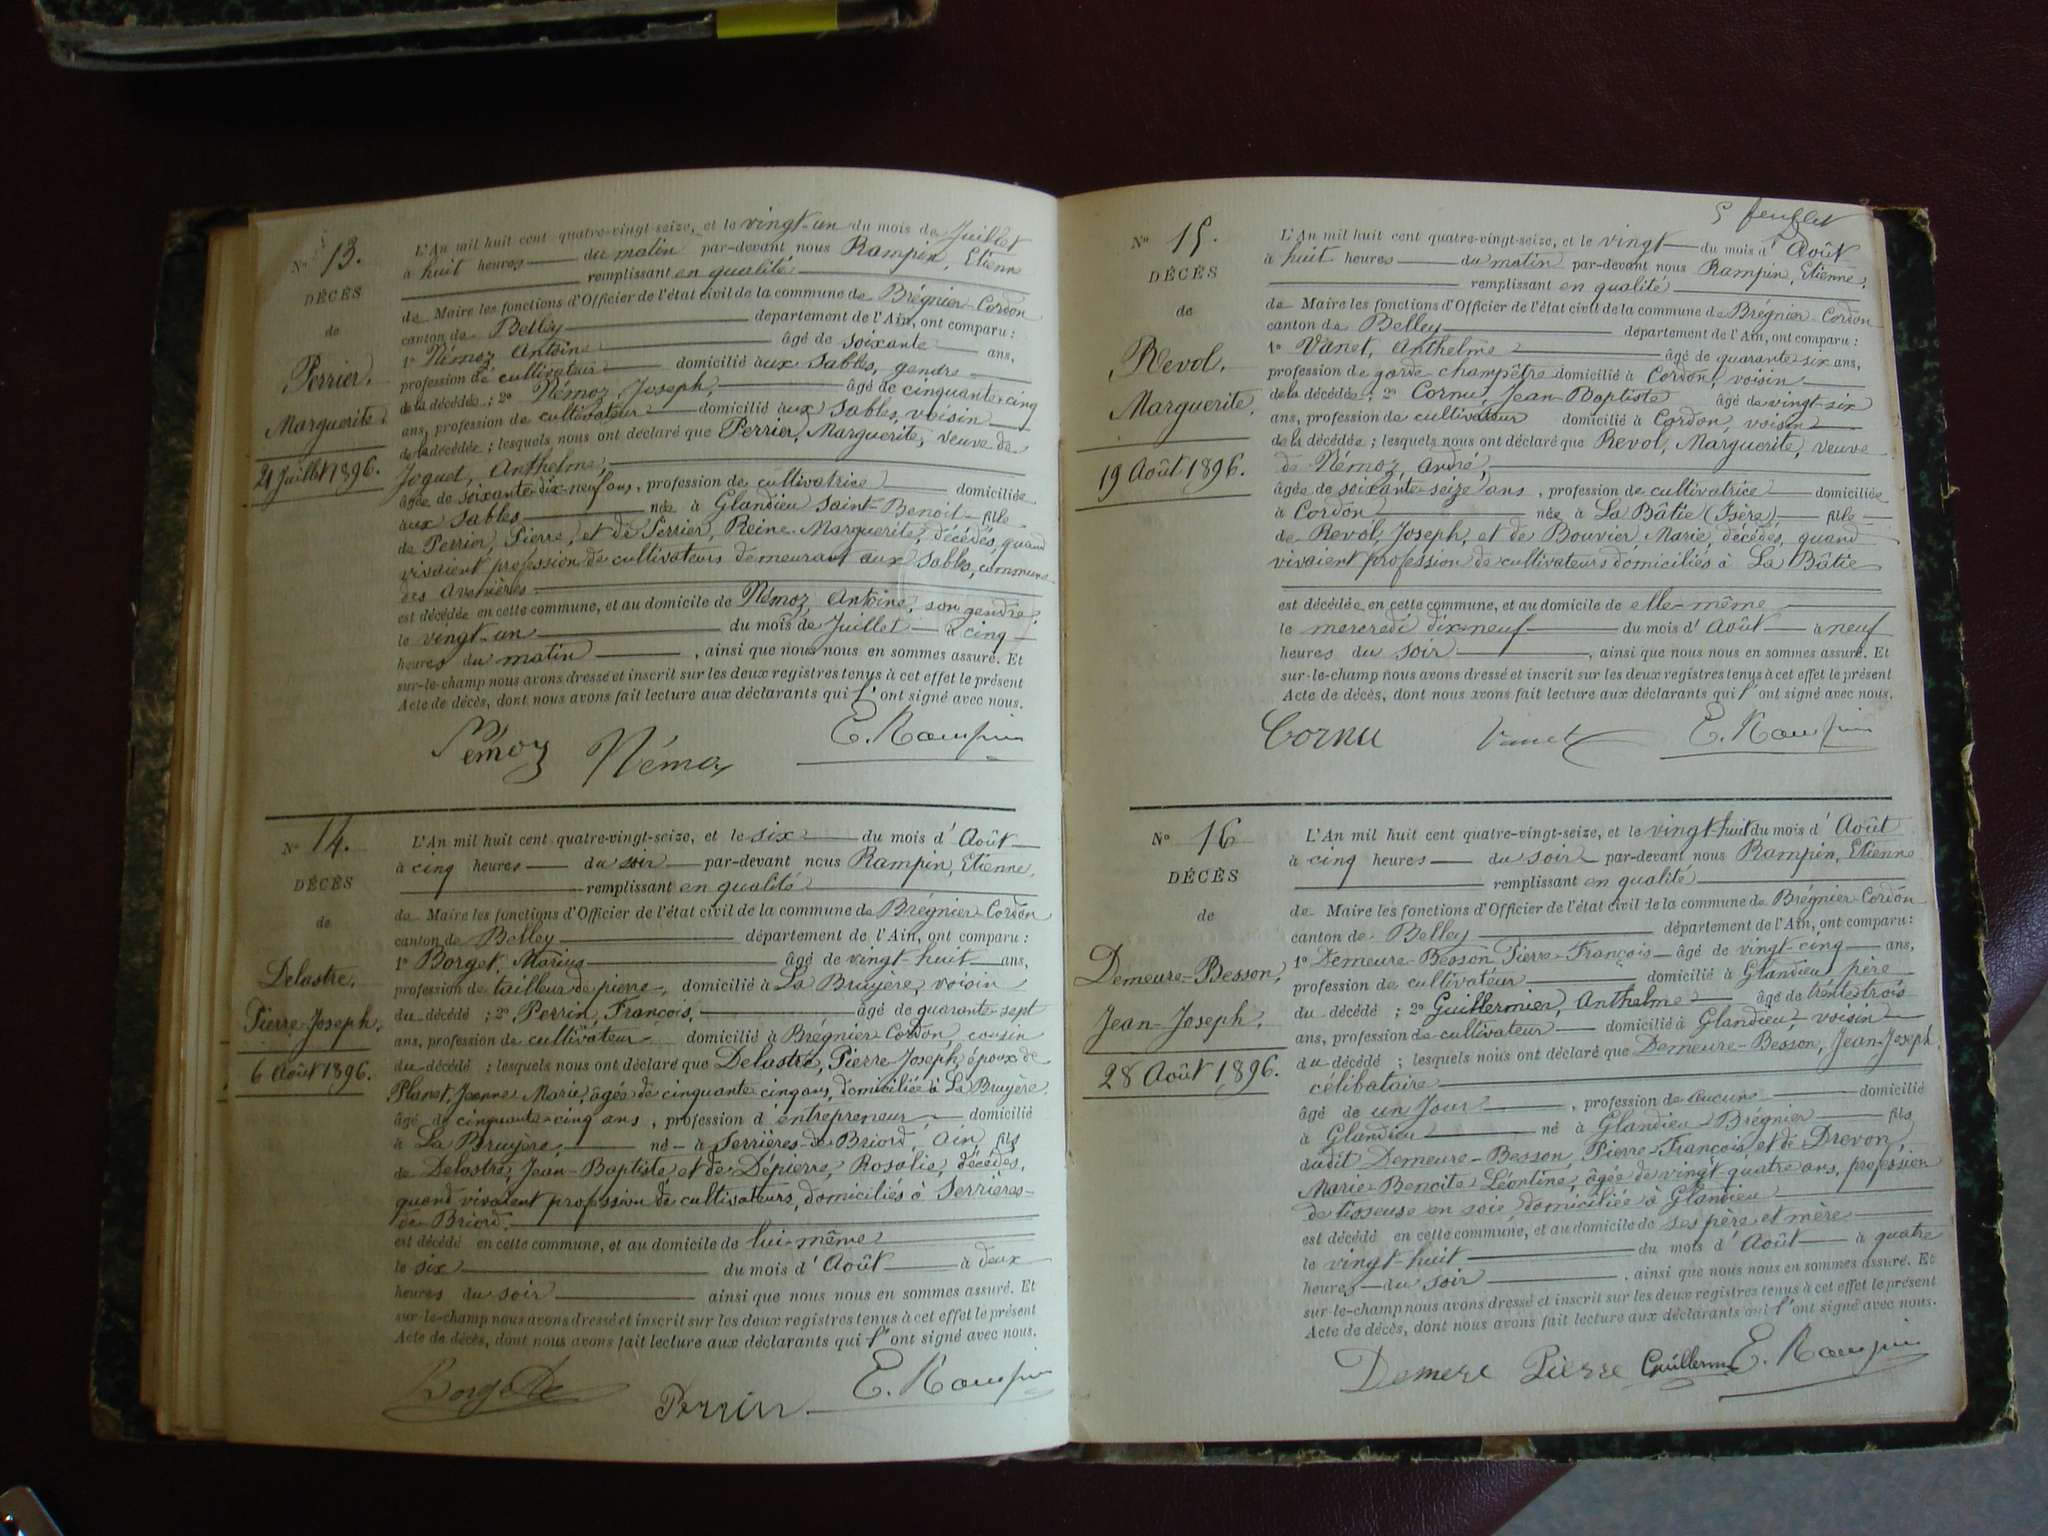 N° 13.
DÉCÈS
de
Perrier,
Marguerite.
21 Juillet 1896.
L'An mil huit cent quatre-vingt-seize, et le vingt-un du mois de Juillet
à huit heures du matin par-devant nous Rampin, Etienne
remplissant en qualité
de Maire les fonctions d'Officier de l'état civil de la commune de Brégnier-Cordon
canton de Belley département de l'Ain, ont comparu :
1° Némoz Antoine âgé de soixante ans,
profession de cultivateur domicilié aux Sables, gendre
de la décédée ; 2° Némoz, Joseph, âgé de cinquante-cinq
ans, profession de cultivateur domicilié aux Sables, voisin
de la décédée ; lesquels nous ont déclaré que Perrier, Marguerite, veuve de
Joguet, Anthelme,
âgée de soixante-dix-neuf ans, profession de cultivatrice domiciliée
aux Sables née à Glandieu Saint-Benoit fille
de Perrier, Pierre, et de Perrier, Reine-Marguerite, décédés, quand
vivaient profession de cultivateurs demeurant aux Sables, commune
des Avenières
est décédée en cette commune, et au domicile de Némoz, Antoine, son gendre,
le vingt-un du mois de Juillet à cinq
heures du matin , ainsi que nous nous en sommes assuré. Et
sur-le-champ nous avons dressé et inscrit sur les deux registres tenus à cet effet le présent
Acte de décès, dont nous avons fait lecture aux déclarants qui l'ont signé avec nous.
Némoz Némoz E. Rampin
N° 14.
DÉCÈS
de
Delastre,
Pierre-Joseph.
6 Août 1896.
L'An mil huit cent quatre-vingt-seize, et le six du mois d'Août
à cinq heures du soir par-devant nous Rampin, Etienne,
remplissant en qualité
de Maire les fonctions d'Officier de l'état civil de la commune de Brégnier-Cordon
canton de Belley département de l'Ain, ont comparu :
1° Borget, Marius âgé de vingt-huit ans,
profession de tailleur de pierre, domicilié à La Bruyère, voisin
du décédé ; 2° Perrin, François, âgé de quarante-sept
ans, profession de cultivateur domicilié à Brégnier-Cordon, cousin
du décédé ; lesquels nous ont déclaré que Delastre, Pierre Joseph, époux de
Planet, Jeanne Marie, âgée de cinquante-cinq ans, domiciliée à La Bruyère
âgé de cinquante-cinq ans, profession d'entrepreneur domicilié
à La Bruyère, né à Serrières-de-Briord, Ain, fils
de Delastre, Jean-Baptiste et de Dépierre, Rosalie, décédés,
quand vivaient profession de cultivateurs, domiciliés à Serrières-
de-Briord.
est décédé en cette commune, et au domicile de lui-même
le six du mois d'Août à deux
heures du soir ainsi que nous nous en sommes assuré. Et
sur-le-champ nous avons dressé et inscrit sur les deux registres tenus à cet effet le présent
Acte de décès, dont nous avons fait lecture aux déclarants qui l'ont signé avec nous.
Perrin E. Rampin
5 feuillet
N° 15.
DÉCÈS
de
Revol.
Marguerite.
19 Août 1896.
L'An mil huit cent quatre-vingt-seize, et le vingt du mois d'Août
à huit heures du matin par-devant nous Rampin, Etienne,
remplissant en qualité
de Maire les fonctions d'Officier de l'état civil de la commune de Brégnier-Cordon
canton de Belley département de l'Ain, ont comparu :
1° Vanet, Anthelme âgé de quarante-six ans,
profession de garde-champêtre domicilié à Cordon, voisin
de la décédée ; 2° Cornu, Jean-Baptiste âgé de vingt-six
ans, profession de cultivateur domicilié à Cordon, voisin
de la décédée ; lesquels nous ont déclaré que Revol, Marguerite, veuve
de Némoz, André,
âgée de soixante-seize ans , profession de cultivatrice domiciliée
à Cordon née à La Bâtie (Isère) fille
de Revol, Joseph, et de Bouvier, Marie, décédés, quand
vivaient profession de cultivateurs domiciliés à La Bâtie
est décédée en cette commune, et au domicile de elle-même
le mercredi dix-neuf du mois d'Août à neuf
heures du soir , ainsi que nous nous en sommes assuré. Et
sur-le-champ nous avons dressé et inscrit sur les deux registres tenus à cet effet le présent
Acte de décès, dont nous avons fait lecture aux déclarants qui l'ont signé avec nous.
Cornu Vanet E. Rampin
N° 16
DÉCÈS
de
Demeure-Besson,
Jean-Joseph.
28 Août 1896.
L'An mil huit cent quatre-vingt-seize, et le vingt-huit du mois d'Août
à cinq heures du soir par-devant nous Rampin, Etienne
remplissant en qualité
de Maire les fonctions d'Officier de l'état civil de la commune de Brégnier-Cordon
canton de Belley département de l'Ain, ont comparu :
1° Demeure-Besson Pierre-François âgé de vingt-cinq ans,
profession de cultivateur domicilié à Glandieu père
du décédé ; 2° Guillermier, Anthelme âgé de trente-trois
ans, profession de cultivateur domicilié à Glandieu, voisin
du décédé ; lesquels nous ont déclaré que Demeure-Besson, Jean-Joseph,
célibataire
âgé de un Jour , profession de aucune domicilié
à Glandieu né à Glandieu-Brégnier fils
dudit Demeure-Besson, Pierre-François, et de Drevon,
Marie-Benoite-Léontine, âgée de vingt-quatre ans, profession
de tisseuse en soie, domiciliée à Glandieu
est décédé en cette commune, et au domicile de ses père et mère
le vingt-huit du mois d'Août à quatre
heures du soir , ainsi que nous nous en sommes assuré. Et
sur-le-champ nous avons dressé et inscrit sur les deux registres tenus à cet effet le présent
Acte de décès, dont nous avons fait lecture aux déclarants qui l'ont signé avec nous.
Demere Pierre E. Rampin